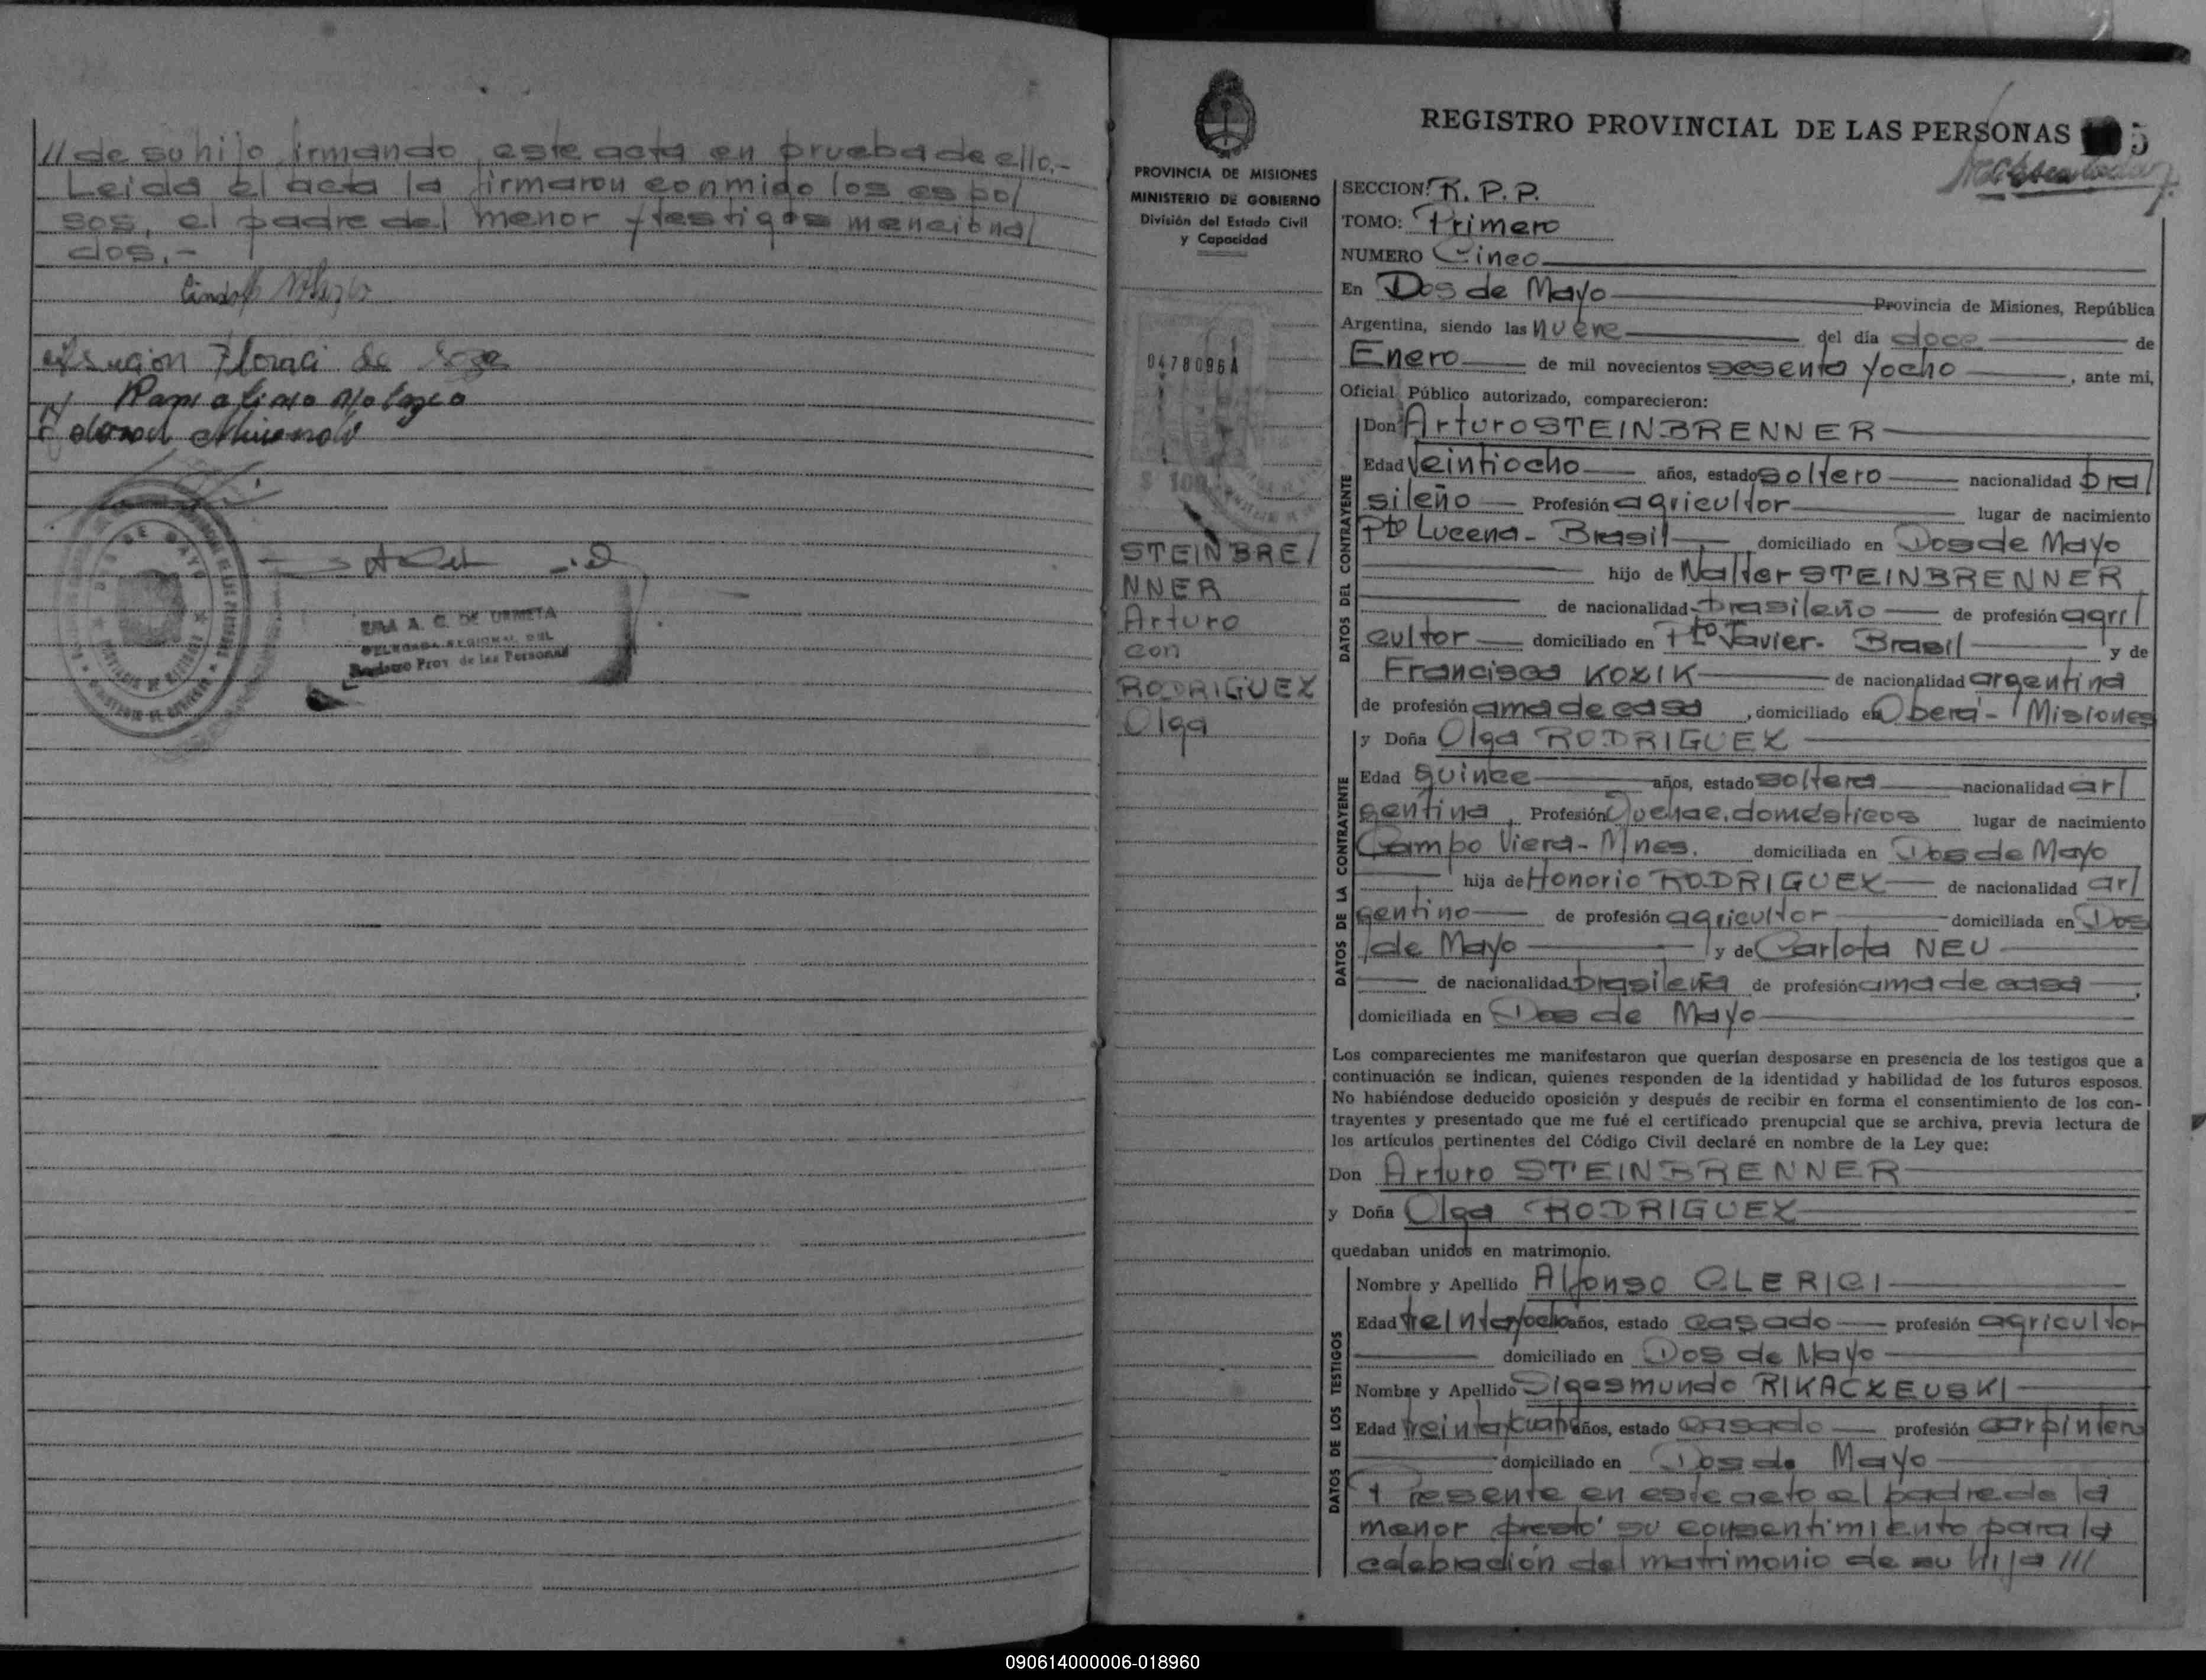 // de su hijo firmando este acta en prueba de ello.-
Leida el acta la firmaron conmigo los espo/
sos, el padre del menor y testigos menciona/
dos.-
DOS DE MAYO
A. C. DE URMETA
DELEGADA REGIONAL DEL
Registro Prov. de las Personas
PROVINCIA DE MISIONES
MINISTERIO DE GOBIERNO
División del Estado Civil
y Capacidad
0478096A
$ 100
STEINBRE/
NNER
Arturo
con
RODRIGUEZ
Olga
REGISTRO PROVINCIAL DE LAS PERSONAS 5
SECCION: R.P.P.
TOMO: Primero
NUMERO Cinco
En Dos de Mayo Provincia de Misiones, República
Argentina, siendo las nueve del día doce de
Enero de mil novecientos sesenta y ocho, ante mi,
Oficial Público autorizado, comparecieron:
DATOS DEL CONTRAYENTE
Don Arturo STEINBRENNER
Edad Veintiocho años, estado soltero nacionalidad bra/
sileño Profesión agricultor lugar de nacimiento
Pto Lucena - Brasil domiciliado en Dos de Mayo
hijo de Walter STEINBRENNER
de nacionalidad brasileño de profesión agri/
cultor domiciliado en Pto Javier - Brasil y de
Francisca KOZIK de nacionalidad argentina
de profesión ama de casa, domiciliado en Oberá - Misiones
DATOS DE LA CONTRAYENTE
y Doña Olga RODRIGUEZ
Edad quince años, estado soltera nacionalidad ar/
gentina, Profesión Quehac. domésticos lugar de nacimiento
Campo Viera - Mnes. domiciliada en Dos de Mayo
hija de Honorio RODRIGUEZ de nacionalidad ar/
gentino de profesión agricultor domiciliada en Dos
de Mayo y de Carlota NEU
de nacionalidad brasileña de profesión ama de casa,
domiciliada en Dos de Mayo
Los comparecientes me manifestaron que querían desposarse en presencia de los testigos que a
continuación se indican, quienes responden de la identidad y habilidad de los futuros esposos.
No habiéndose deducido oposición y después de recibir en forma el consentimiento de los con-
trayentes y presentado que me fué el certificado prenupcial que se archiva, previa lectura de
los artículos pertinentes del Código Civil declaré en nombre de la Ley que:
Don Arturo STEINBRENNER
y Doña Olga RODRIGUEZ
quedaban unidos en matrimonio.
DATOS DE LOS TESTIGOS
Nombre y Apellido Alfonso CLERICI
Edad treinta y ocho años, estado casado profesión agricultor
domiciliado en Dos de Mayo
Nombre y Apellido Sigesmundo RIKACZEUSKI
Edad treinta y cuatro años, estado casado profesión carpintero
domiciliado en Dos de Mayo
Presente en este acto el padre de la
menor prestó su consentimiento para la
celebración del matrimonio de su hija ///
090614000006-018960